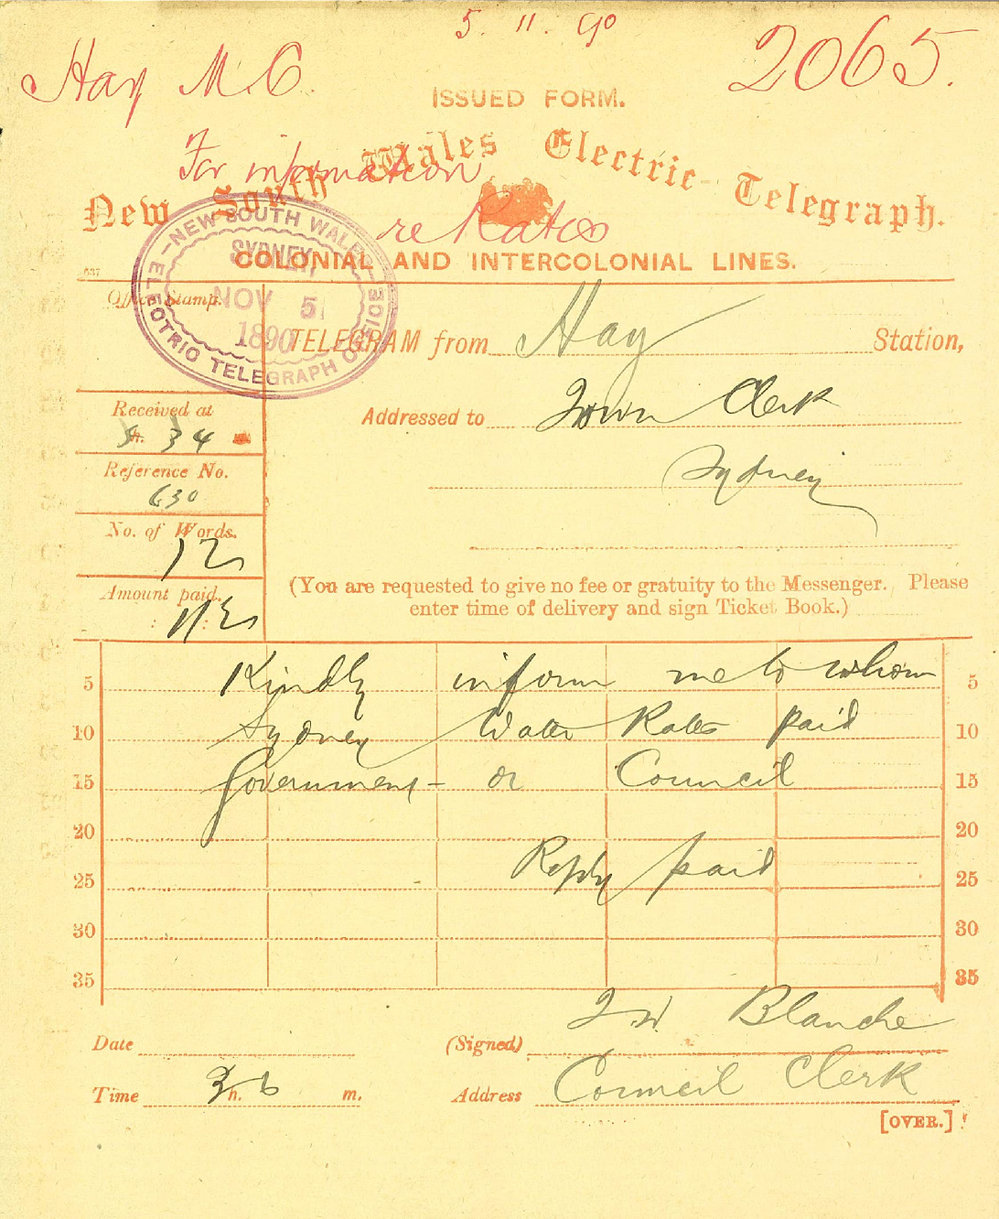 5. 11. 90
Hay M.C.
2065.
ISSUED FORM.
For information
New South Wales Electric Telegraph.
re Rates
COLONIAL AND INTERCOLONIAL LINES.
637
NEW SOUTH WALES
SYDNEY
NOV 5
1890
ELECTRIC TELEGRAPH OFFICE
Office Stamp.
TELEGRAM from Hay Station,
Addressed to Town Clerk
Sydney
Received at
h. 34
Reference No.
630
No. of Words.
12
Amount paid.
(You are requested to give no fee or gratuity to the Messenger. Please
enter time of delivery and sign Ticket Book.)
5 Kindly inform me to whom 5
10 Sydney Water Rates paid 10
15 Government or Council 15
20 20
25 Reply paid 25
30 30
35 35
Date
(Signed) Blanche
Time 3 h. 6 m.
Address Council Clerk
[OVER.]